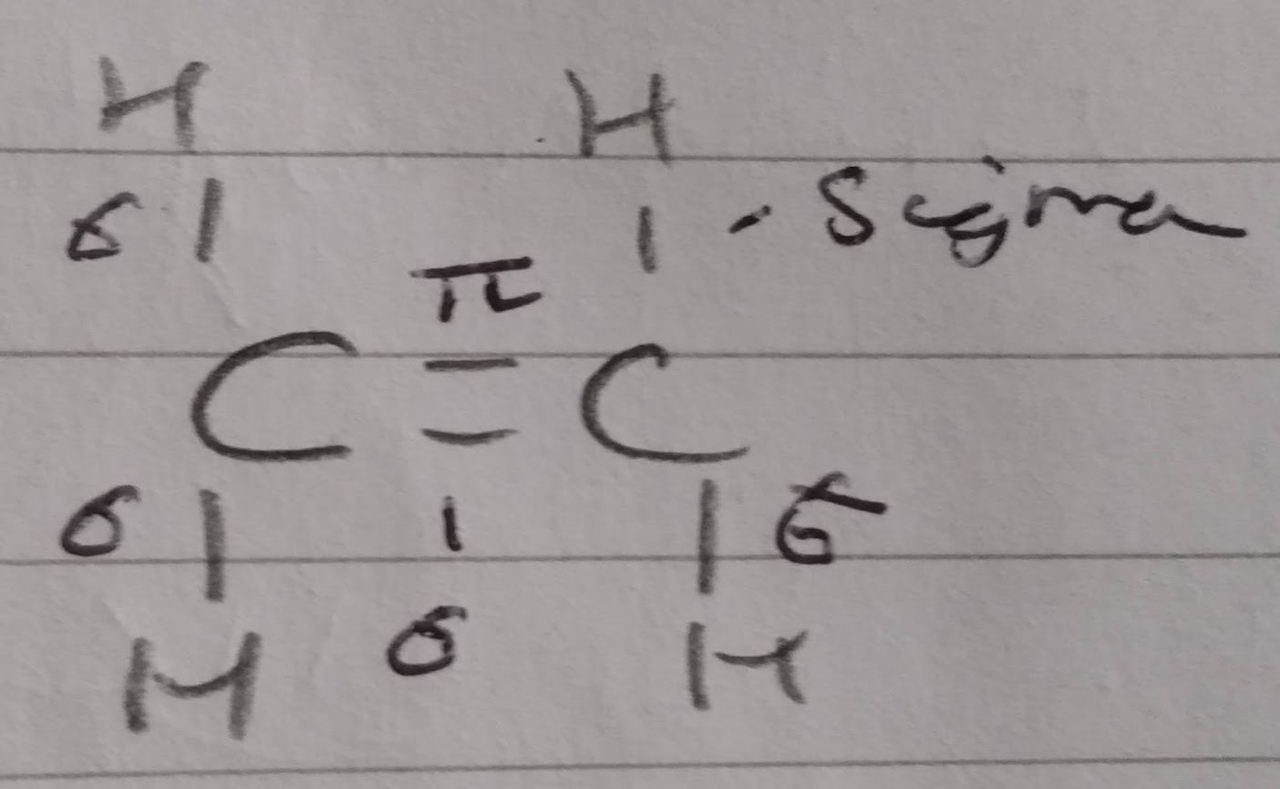 H H
σ | | . Sigma
π
C = C
σ | | | σ
H σ H